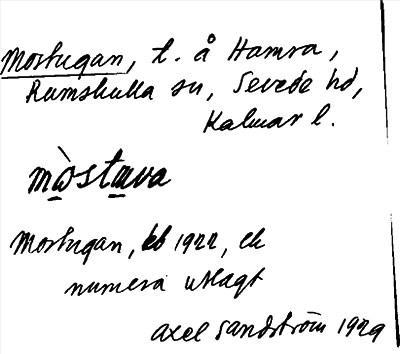 Mostugan, t. å Hamra,
Rumskulla sn, Sevede hd,
Kalmar l.
mòstuva
Mostugan, kb 1922, ek
numera utlagt
Axel Sandström 1929